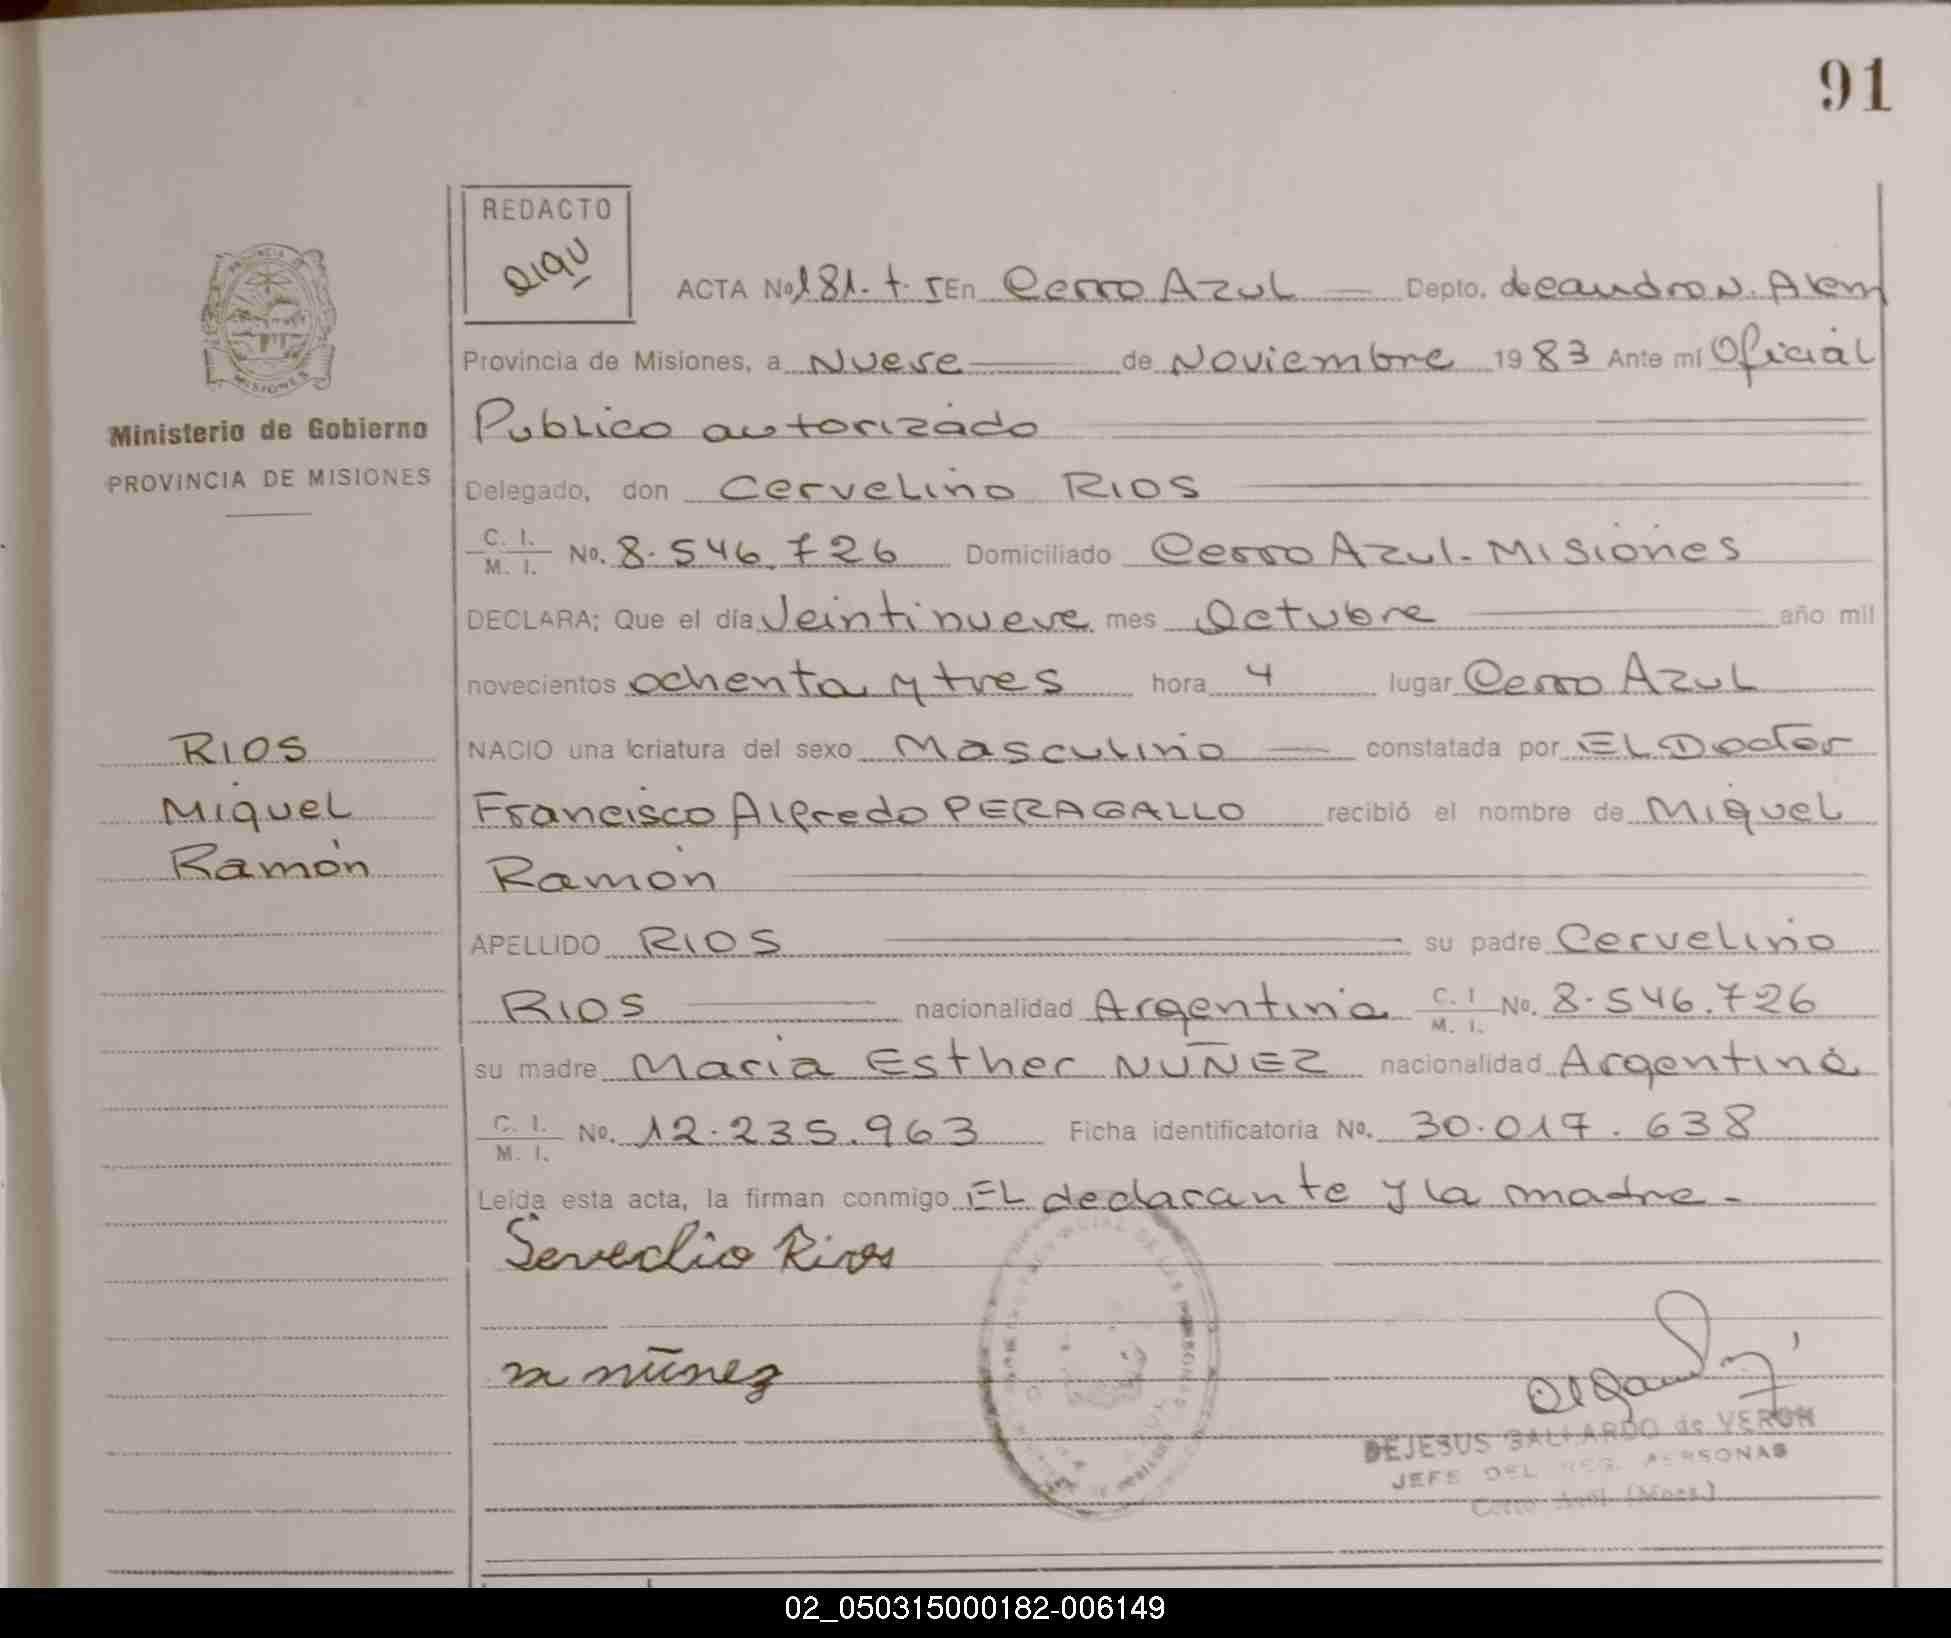 91
REDACTO
ACTA Nº 181. t. I En Cerro Azul Depto. Leandro N. Alem
Provincia de Misiones, a Nueve de Noviembre 1983 Ante mí Oficial
Publico autorizado
Delegado, don Cervelino RIOS
C. I. / M. I. Nº. 8.546.726 Domiciliado Cerro Azul-Misiones
DECLARA; Que el día Veintinueve mes Octubre año mil
novecientos ochenta y tres hora 4 lugar Cerro Azul
NACIO una criatura del sexo Masculino constatada por EL Doctor
Francisco Alfredo PERAGALLO recibió el nombre de Miguel
Ramón
APELLIDO RIOS su padre Cervelino
RIOS nacionalidad Argentina C. I / M. I. Nº. 8.546.726
su madre Maria Esther NUÑEZ nacionalidad Argentina
C. I. / M. I. Nº. 12.235.963 Ficha identificatoria Nº. 30.017.638
Leída esta acta, la firman conmigo EL declarante y la madre -
Rios
m nuñez
DEJESUS GALLARDO de VERON
JEFE DEL REG. PERSONAS
Cerro Azul (Mnes)
PROVINCIA DE
MISIONES
Ministerio de Gobierno
PROVINCIA DE MISIONES
RIOS
Miguel
Ramón
02_050315000182-006149